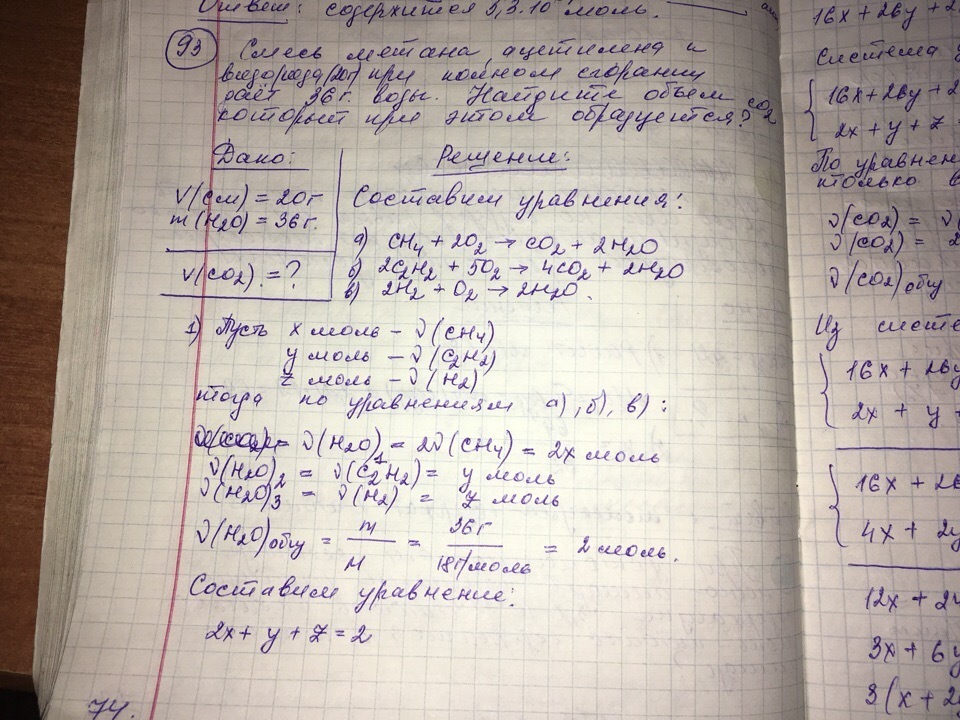 Ответ: содержится 3,3·10 моль.
93 Смесь метана, ацетилена и
водорода (20г) при полном сгорании
даёт 36 г. воды. Найдите объем CO2
который при этом образуется?
Дано:
V(см) = 20г
m(H2O) = 36г.
V(CO2) = ?
Решение:
Составим уравнения:
а) CH4 + 2O2 → CO2 + 2H2O
б) 2C2H2 + 5O2 → 4CO2 + 2H2O
в) 2H2 + O2 → 2H2O.
1) Пусть x моль - ν(CH4)
y моль - ν(C2H2)
z моль - ν(H2)
тогда по уравнениям а), б), в):
ν(H2O)1 = 2ν(CH4) = 2x моль
ν(H2O)2 = ν(C2H2) = y моль
ν(H2O)3 = ν(H2) = z моль
ν(H2O)общ = m/M = 36г/18г/моль = 2 моль.
Составим уравнение:
2x + y + z = 2
74.
16x + 26y + 2
Система у
16x + 26y + 2
2x + y + z =
По уравнен
только в
ν(CO2) = ν(
ν(CO2) = 2
ν(CO2)общ
Из систе
16x + 26y
2x + y +
16x + 26
4x + 2y
12x + 24
3x + 6y
3(x + 2y